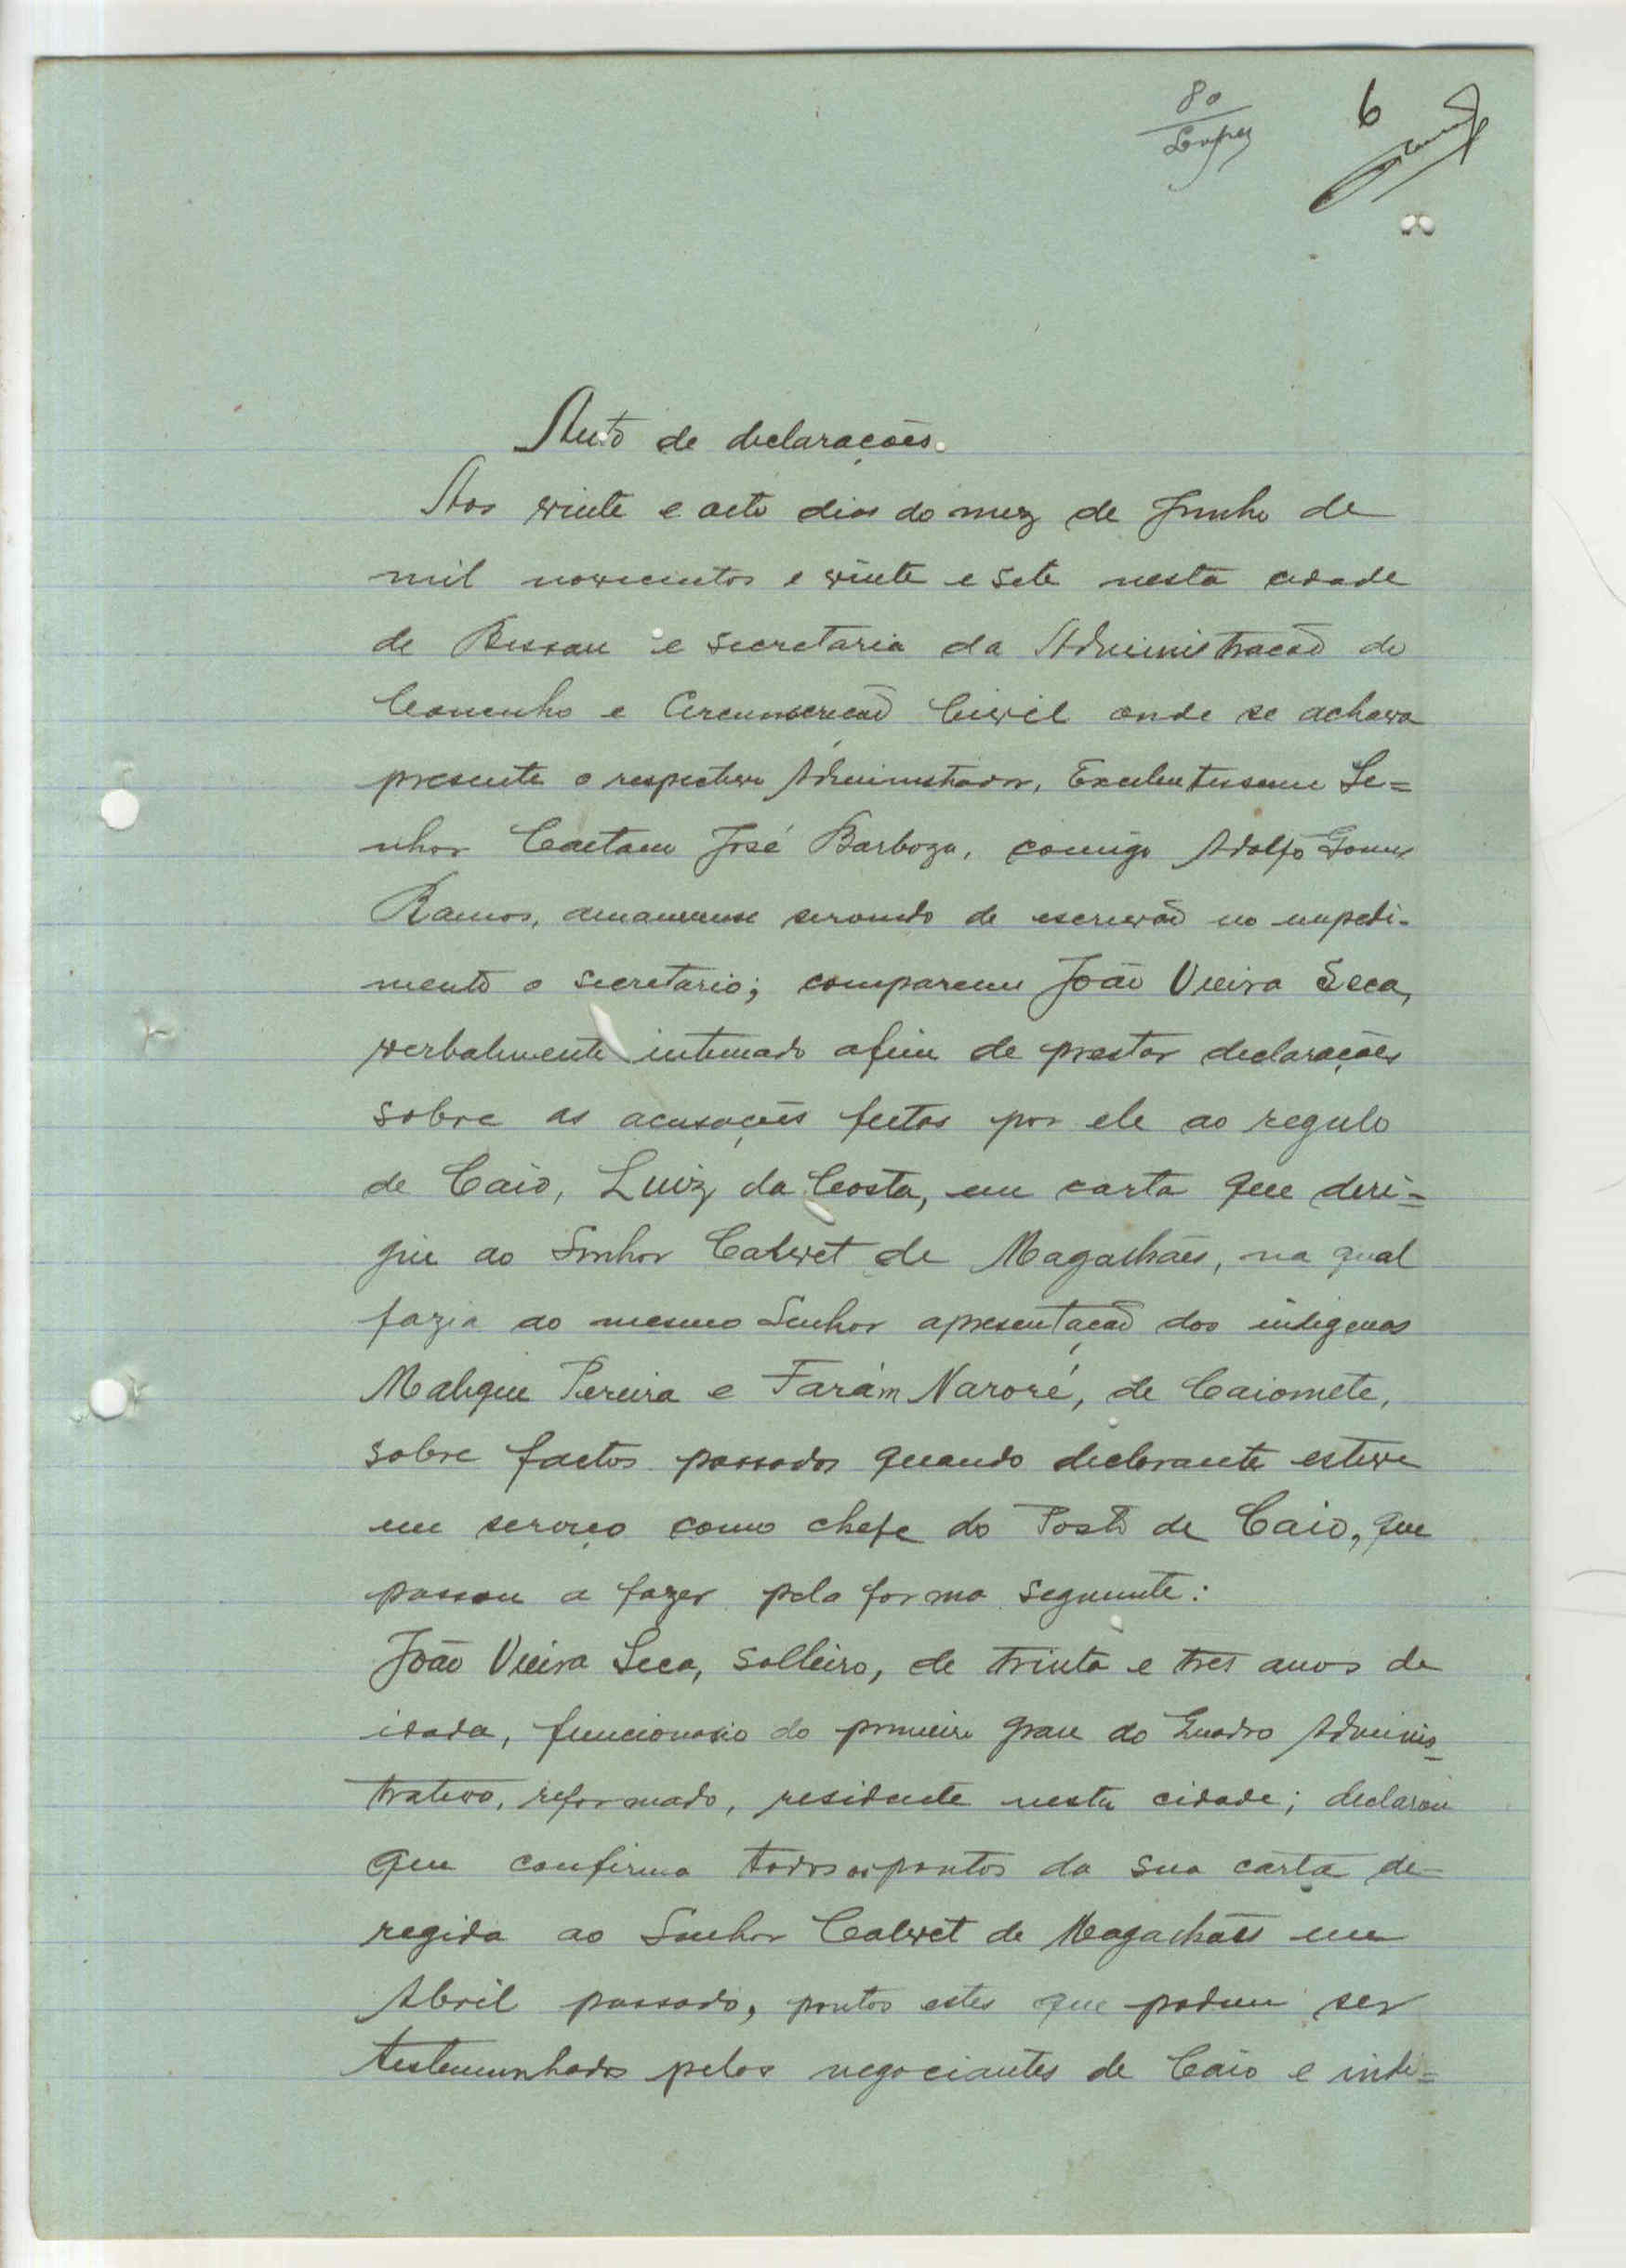 80
Lopes
6
Auto de declarações.
Aos vinte e oito dias do mez de Junho de
mil novecentos e vinte e sete nesta cidade
de Bissau e secretaria da Administração do
Concelho e Circunscrição Civil onde se achava
presente o respectivo Administrador, Excelentissimo Se=
nhor Caetano José Barboza, comigo Adolfo Gomes
Ramos, amanuense servindo de escrivão no impedi-
mento o secretario; compareceu João Vieira Seca,
verbalmente intimado afim de prestar declarações
sobre as acusações feitas por ele ao regulo
de Caió, Luiz da Costa, em carta que diri=
giu ao Senhor Calvet de Magalhães, na qual
fazia ao mesmo Senhor apresentação dos indigenas
Malique Pereira e Farám Naroré, de Caiomete,
sobre factos passados quando declarante esteve
em serviço como chefe do Posto de Caió, que
passou a fazer pela forma seguinte:
João Vieira Seca, solteiro, de trinta e tres anos de
idade, funcionario do primeiro grau do Quadro Adminis=
trativo, reformado, residente nesta cidade; declarou
que confirma todos os pontos da sua carta de-
regida ao Senhor Calvet de Magalhães em
Abril passado, pontos estes que podem ser
testemunhados pelos negociantes de Caió e indi=